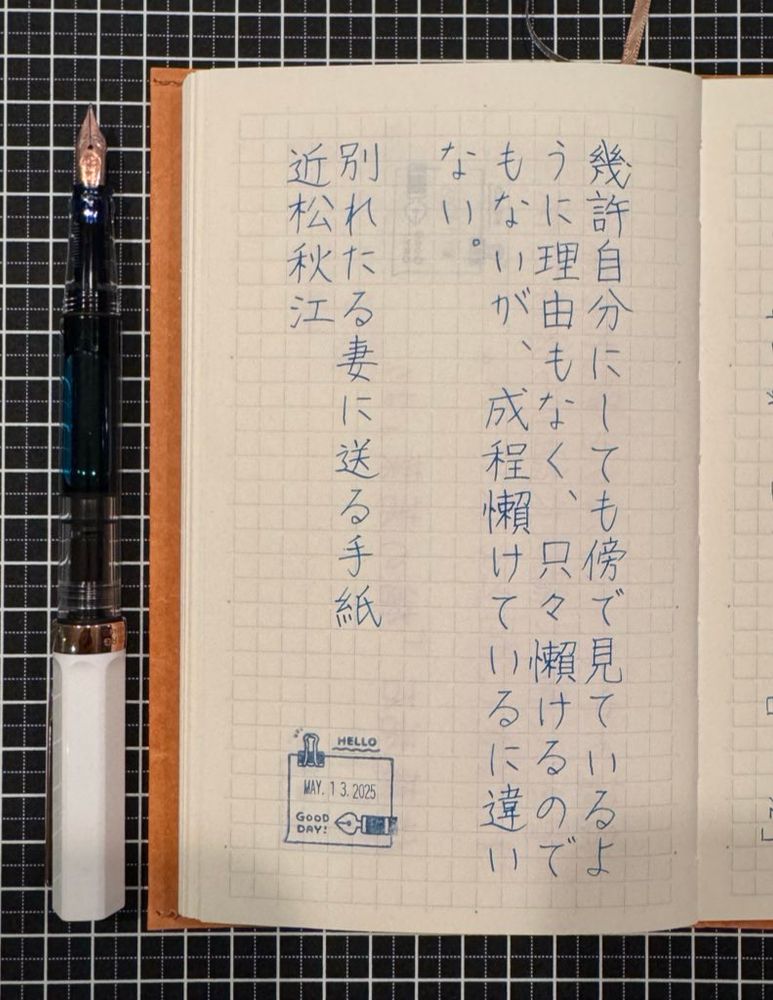 幾許自分にしても傍で見ているよ
うに理由もなく、只々懶けるので
もないが、成程懶けているに違い
ない。
別れたる妻に送る手紙
近松秋江
HELLO
MAY. 13. 2025
GOOD
DAY!